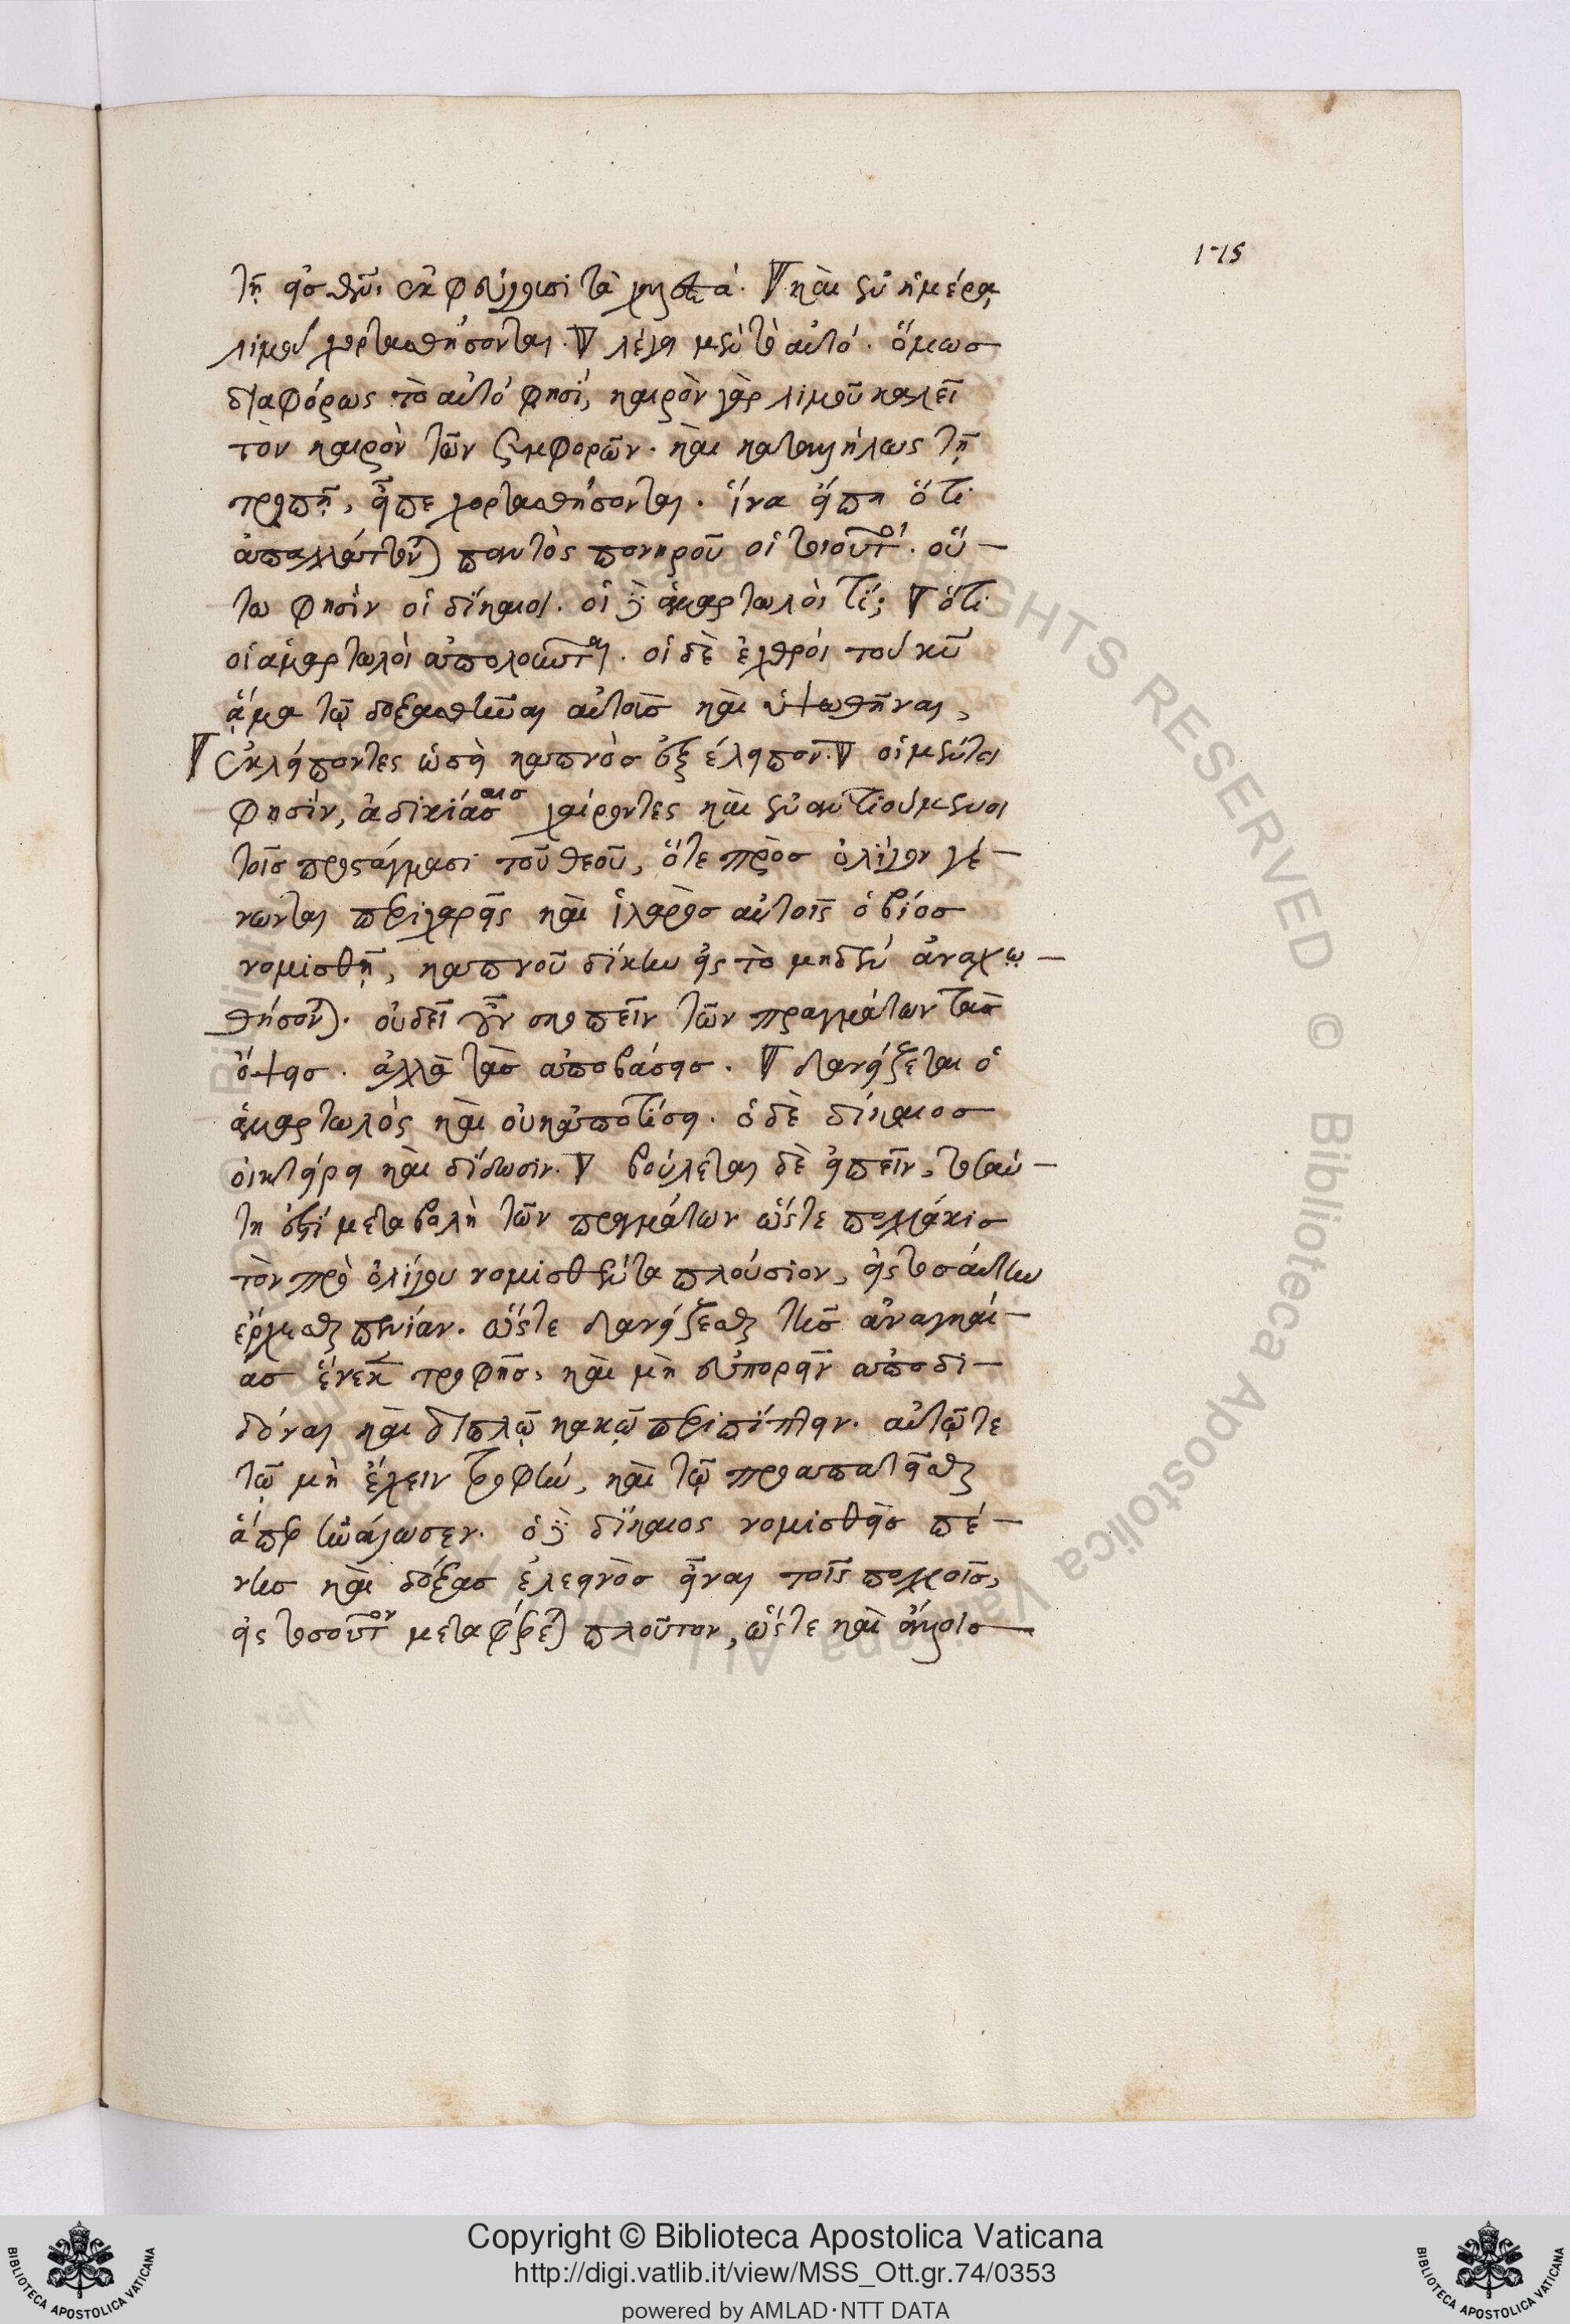 175
τῇ αἰσθήσει ἐκφεύγουσι τὰ χρηστά. καὶ ἐν ἡμέραις
λιμοῦ χορτασθήσονται. λέγει μὲν τὸ αὐτό. ὅμωσ
διαφόρως τὸ αὐτό φησί, καιρὸν γὰρ λιμοῦ καλεῖ
τὸν καιρὸν τῶν συμφορῶν. καὶ καταλλήλως τῇ
τροπῇ, εἶπε χορτασθήσονται. ἵνα εἴπη ὅτι
ἀπαλλάττονται παντὸς πονηροῦ οἱ τοιοῦτοι. οὕ-
τω φησὶν οἱ δίκαιοι. οἱ δὲ ἁμαρτωλοὶ τί; ὅτι
οἱ ἁμαρτωλοὶ ἀπολοῦνται. οἱ δὲ ἐχθροὶ τοῦ κυ
ἅμα τῷ δοξασθῆναι αὐτοῖσ καὶ ὑψωθῆναι,
ἐκλείποντες ὡσεὶ καπνὸσ ἐξέλειπον. οἱ μέντοι
φησὶν, ἀδικίασ αισ χαίροντες καὶ ἐναντιούμενοι
τοῖσ προστάγμασι τοῦ θεοῦ, ὅτε πρὸσ ὀλίγον γέ-
νωνται περιχαρεῖς καὶ ἱλαρὸσ αὐτοῖς ὁ βίοσ
νομισθῇ, καπνοῦ δίκην εἰς τὸ μηδὲν ἀναχω-
θήσονται. οὐ δεῖ οὖν σκοπεῖν τῶν πραγμάτων τὰσ
ὄψεισ. ἀλλὰ τὰσ ἀποβάσεισ. δανείζεται ὁ
ἁμαρτωλὸς καὶ οὐκ ἀποτίσει. ὁ δὲ δίκαιοσ
οἰκτείρει καὶ δίδωσιν. βούλεται δὲ εἰπεῖν, τοσαύ-
τη ἐστὶ μεταβολὴ τῶν πραγμάτων ὥστε πολλάκισ
τὸν πρὸ ὀλίγου νομισθέντα πλούσιον, εἰς τοσαύτην
ἔρχεσθαι πενίαν. ὥστε δανείζεσθαι τῆσ ἀναγκαί-
ασ ἕνεκα τροφῆσ, καὶ μὴ εὐπορεῖν ἀποδι-
δόναι καὶ διπλῷ κακῷ περιπίπτειν. αὐτῷ τε
τῷ μὴ ἔχειν τροφήν, καὶ τῷ προαπαιτεῖσθαι
ἅπερ ἀνάλωσεν. ὁ δὲ δίκαιος νομισθεὶσ πέ-
νησ καὶ δόξασ ἐλεεινὸσ εἶναι τοῖς πολλοῖσ,
εἰς τοσοῦτον μεταφέρεται πλοῦτον, ὥστε καὶ ἄλλοισ
Copyright © Biblioteca Apostolica Vaticana
http://digi.vatlib.it/view/MSS_Ott.gr.74/0353
powered by AMLAD·NTT DATA